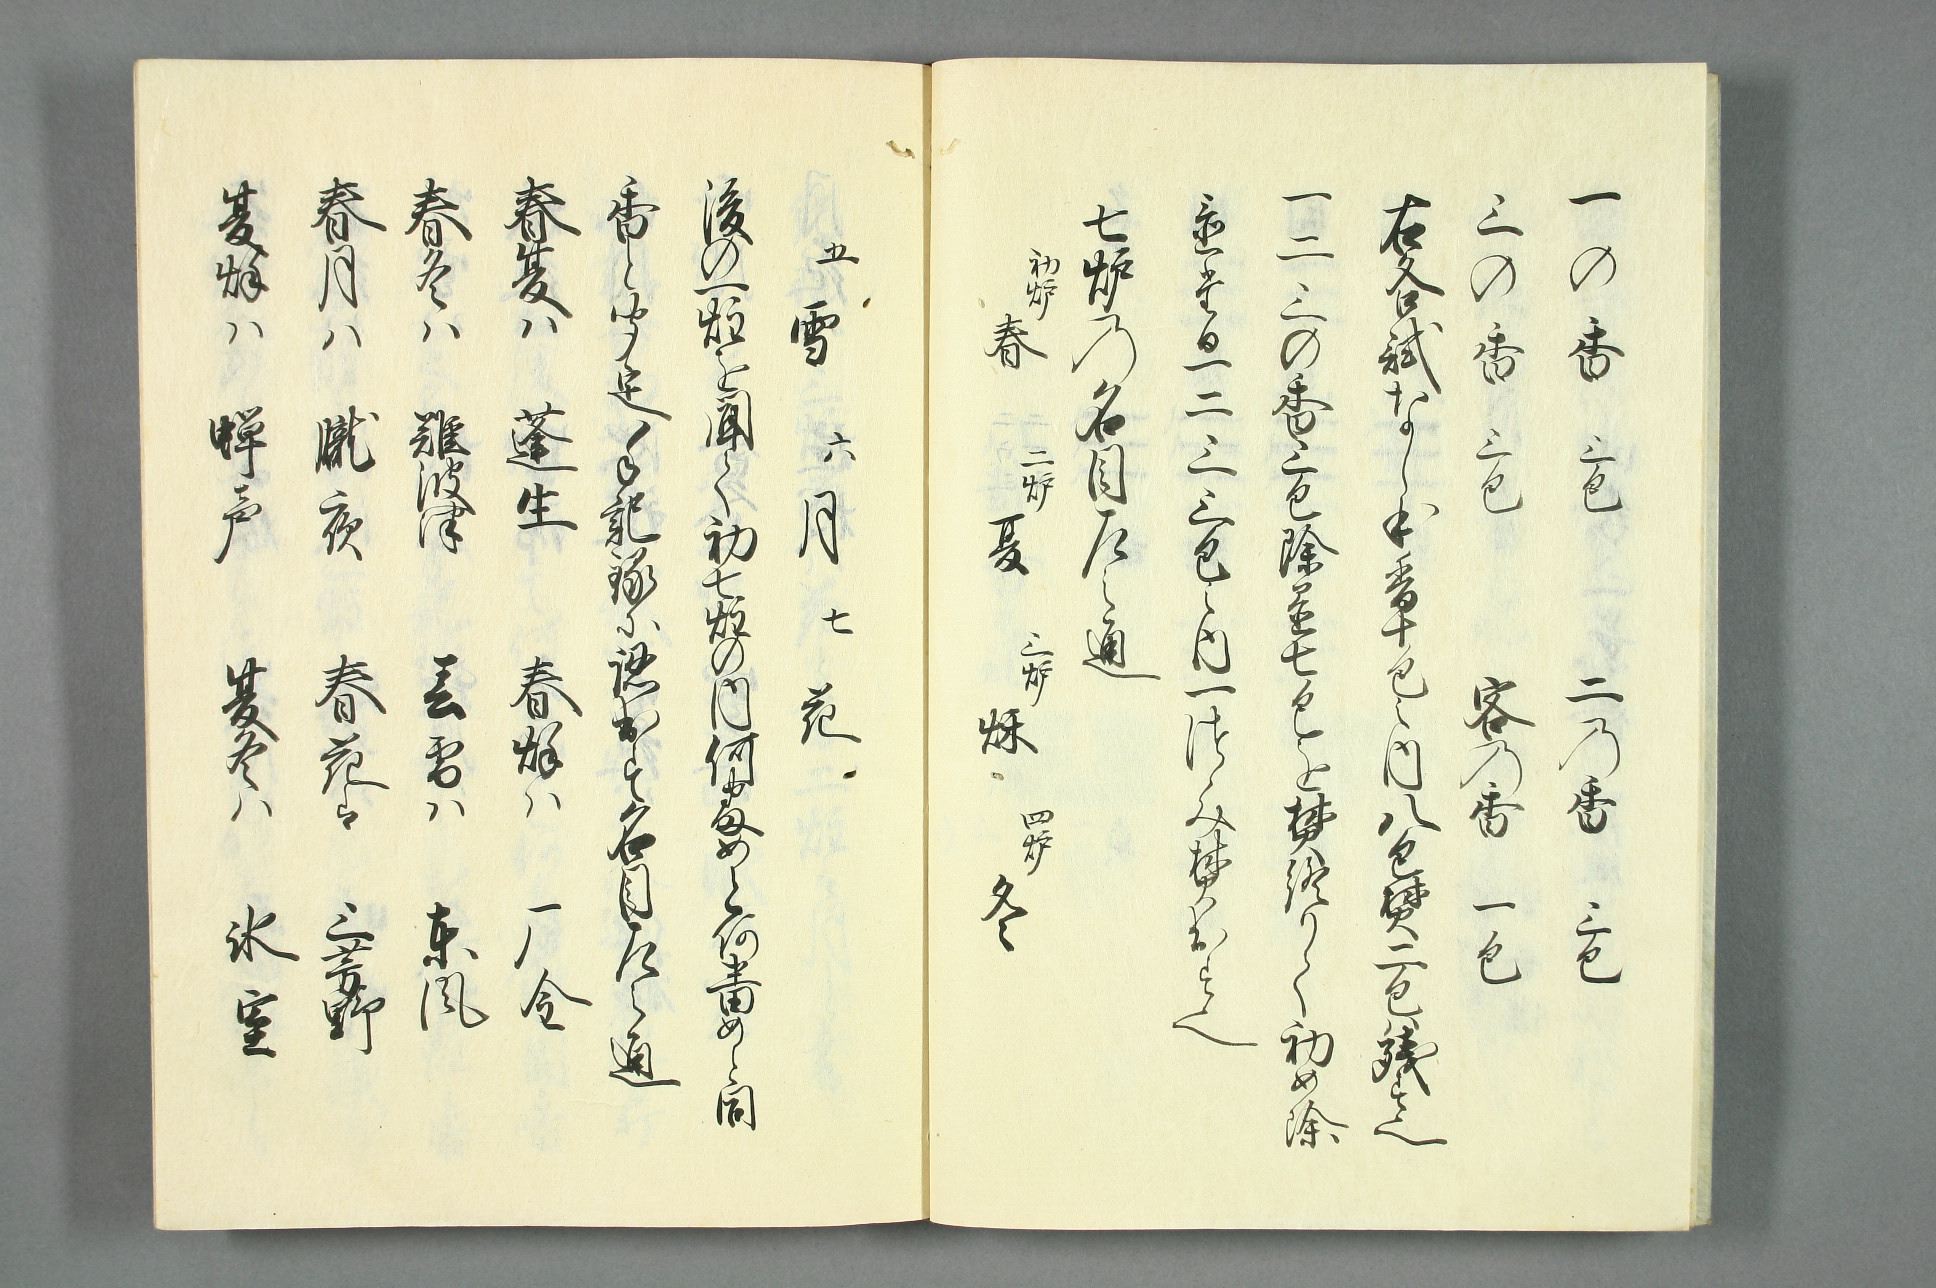 一の香　三包　　二乃香　三包
三の香　三包　　客乃香　一包
右各試なし出香十包之内八包焚二包残すへし
一二三の香三包除置七包を焚終りて初め除
置たる一二三三包之内一つみ焚出すへし
七炉乃名目左之通
初炉 春　二炉 夏　三炉 秌　四炉 冬
五 雪　六 月　七 花
後の一炷を聞て初七炷の内何番めと何番めと同
香と聞定ノ手記録に認出す名目左之通
春夏ハ　蓬生　　春秋ハ　一厂金
春冬ハ　難波津　　春雪ハ　東風
春月ハ　朧夜　　春花ハ　三芳野
夏秋ハ　蝉声　　夏冬ハ　氷室